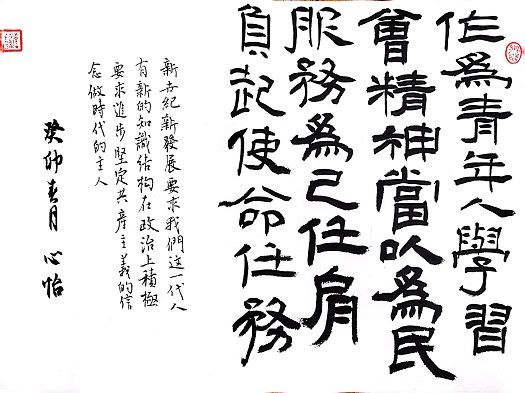 作為青年人學習
會精神當以為民
服務為己任肩
負起使命任務
新世紀新發展要求我們這一代人
有新的知識結构在政治上積極
要求進步堅定共產主義的信
念做時代的主人
癸卯春月 心怡